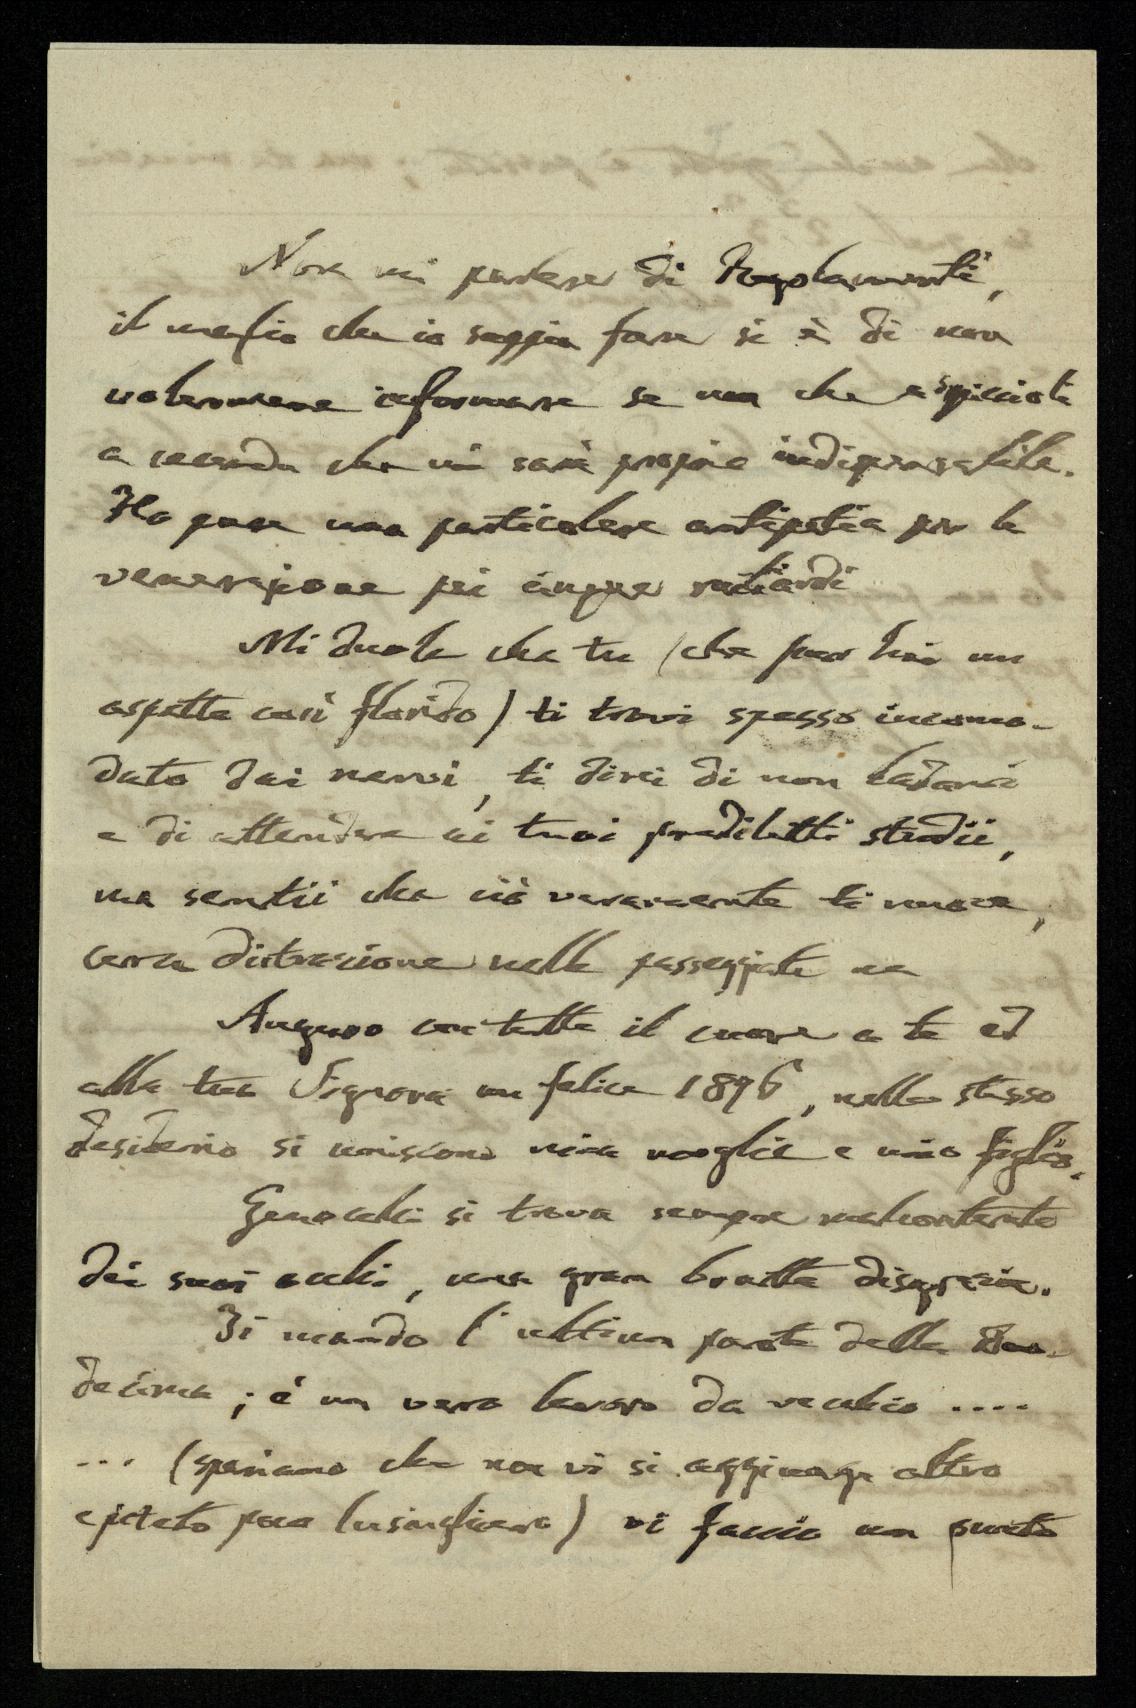 Non mi parlare di Regolamenti,
il meglio che io sappia fare si è di non
volermene informare se non che a spiccioli
a seconda che mi sarà proprio indispensabile.
Ho pure una particolare antipatia per la
venerazione pei cinque
Mi duole che tu (che pur hai un
aspetto così florido) ti trovi spesso incomo-
dato dai nervi, ti direi di non badarci
e di attendere ai tuoi prediletti studii,
ma sentii che ciò veramente ti nuoce,
cerca distrazione nelle passeggiate
Auguro con tutto il cuore a te ed
alla tua Signora un felice 1896, nello stesso
desiderio si uniscono mia moglie e mio figlio.
Genocchi si trova sempre malcontento
dei suoi occhi, una gran brutta disgrazia.
Ti mando l'ultima parte della Duo-
decima; è un vero lavoro da vecchio ....
... (speriamo che non vi si aggiunga altro
epiteto poco lusinghiero) vi faccio un punto